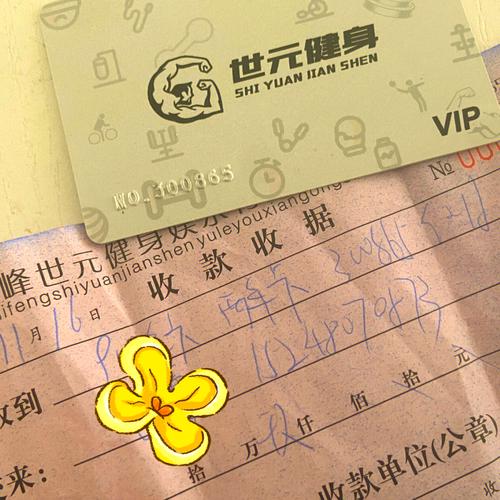 世元健身
SHI YUAN JIAN SHEN
VIP
NO.300865
No 00
峰世元健身娱
ifengshiyuanjianshenyuleyouxiangong
收款收据
11月16日
两年卡 300865
收到 15248070873
拾 万 仟 佰 拾 元
来:
收款单位(公章)
收